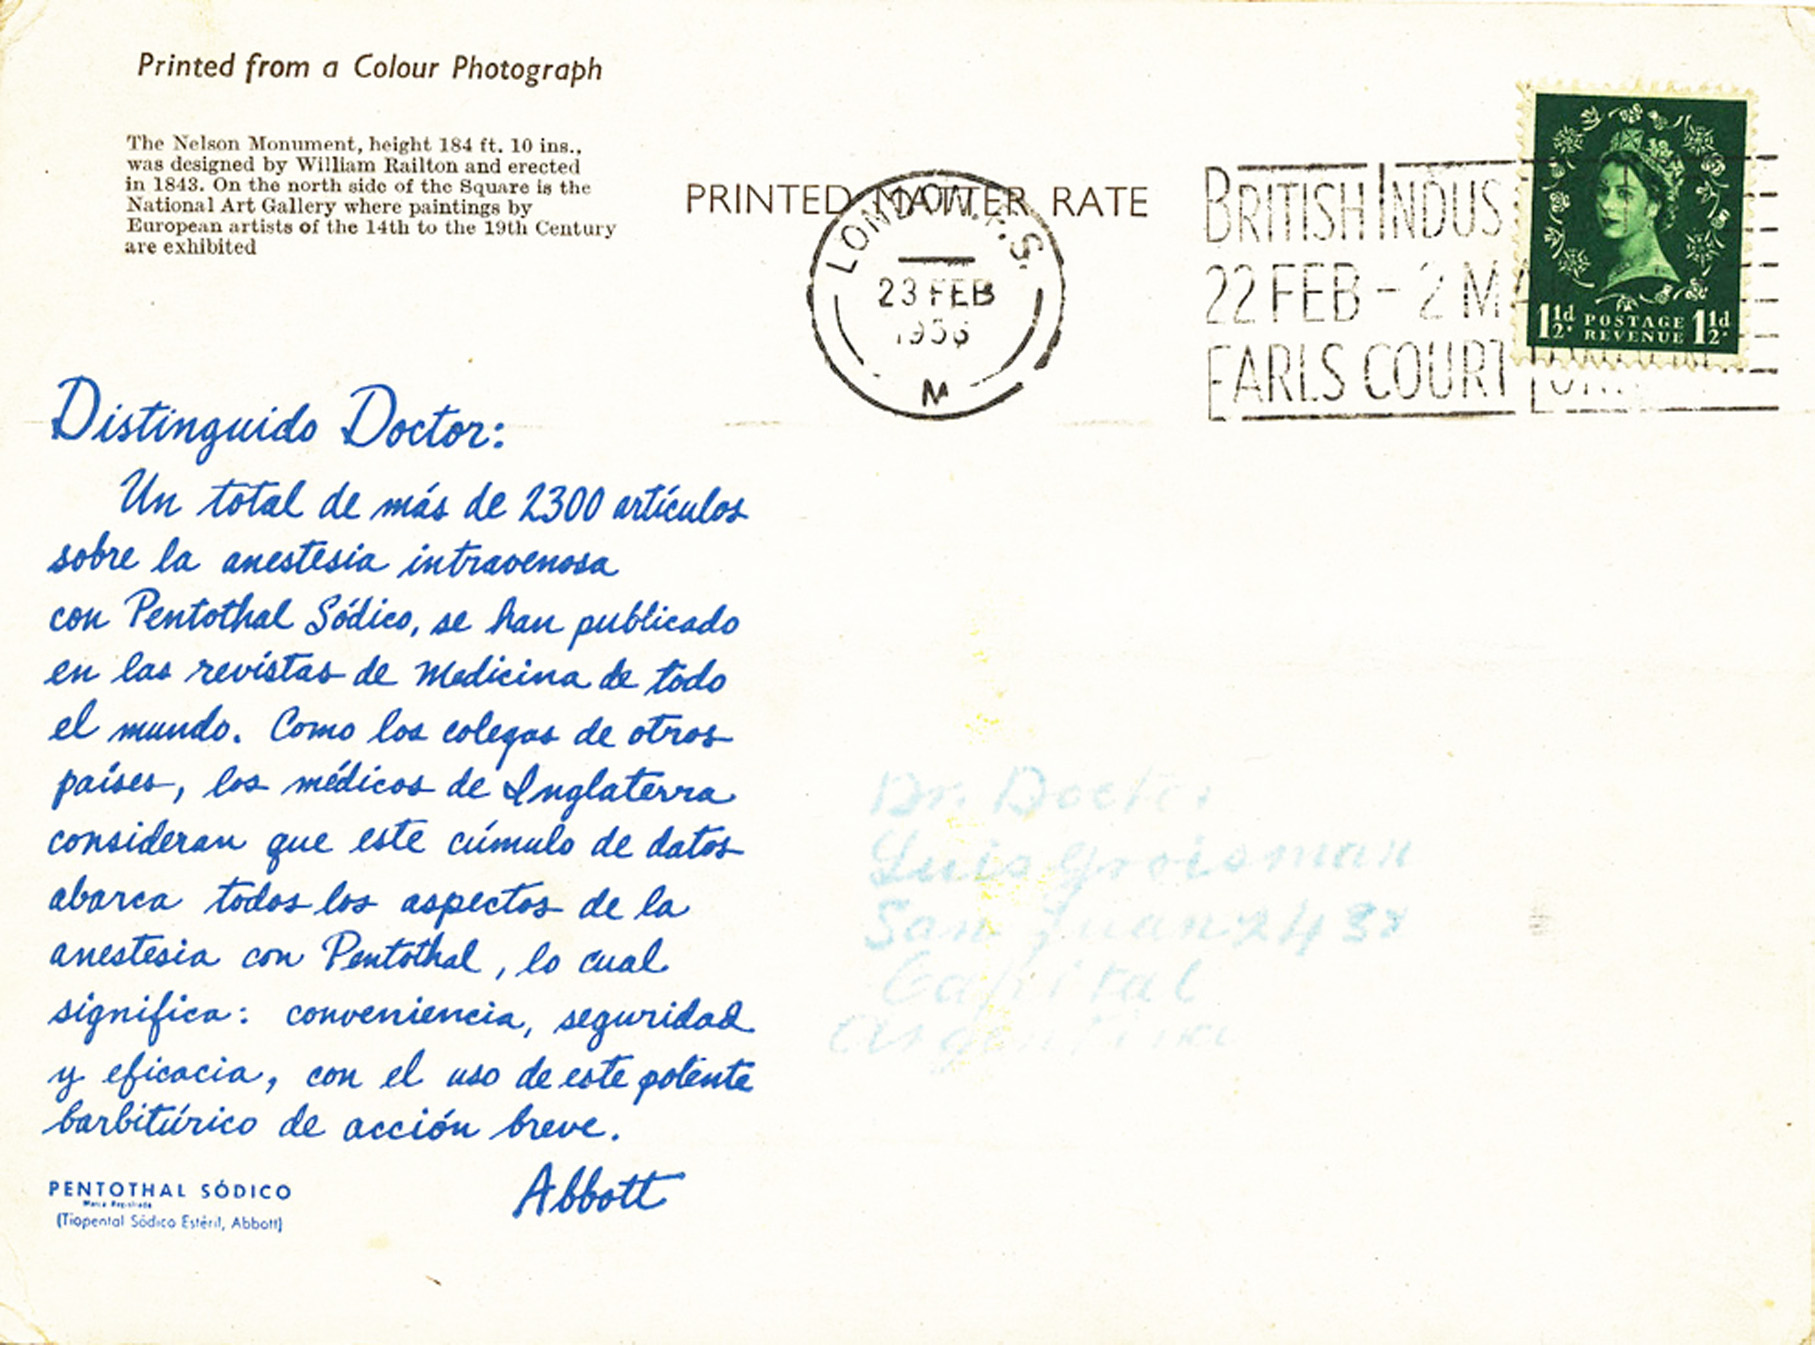 Printed from a Colour Photograph
The Nelson Monument, height 184 ft. 10 ins.,
was designed by William Railton and erected
in 1843. On the north side of the Square is the
National Art Gallery where paintings by
European artists of the 14th to the 19th Century
are exhibited
PRINTED MATTER RATE
LONDON. F.S.
23 FEB
1956
M
BRITISH INDUS
22 FEB - 2 MA
EARLS COURT LON
1½d POSTAGE REVENUE 1½d
Distinguido Doctor:
Un total de más de 2300 artículos
sobre la anestesia intravenosa
con Pentothal Sódico, se han publicado
en las revistas de Medicina de todo
el mundo. Como los colegas de otros
países, los médicos de Inglaterra
consideran que este cúmulo de datos
abarca todos los aspectos de la
anestesia con Pentothal, lo cual
significa: conveniencia, seguridad
y eficacia, con el uso de este potente
barbitúrico de acción breve.
Abbott
PENTOTHAL SÓDICO
Marca Registrada
(Tiopental Sódico Estéril, Abbott)
Dr. Doctor
Luis Groisman
San Juan
Capital
Argentina